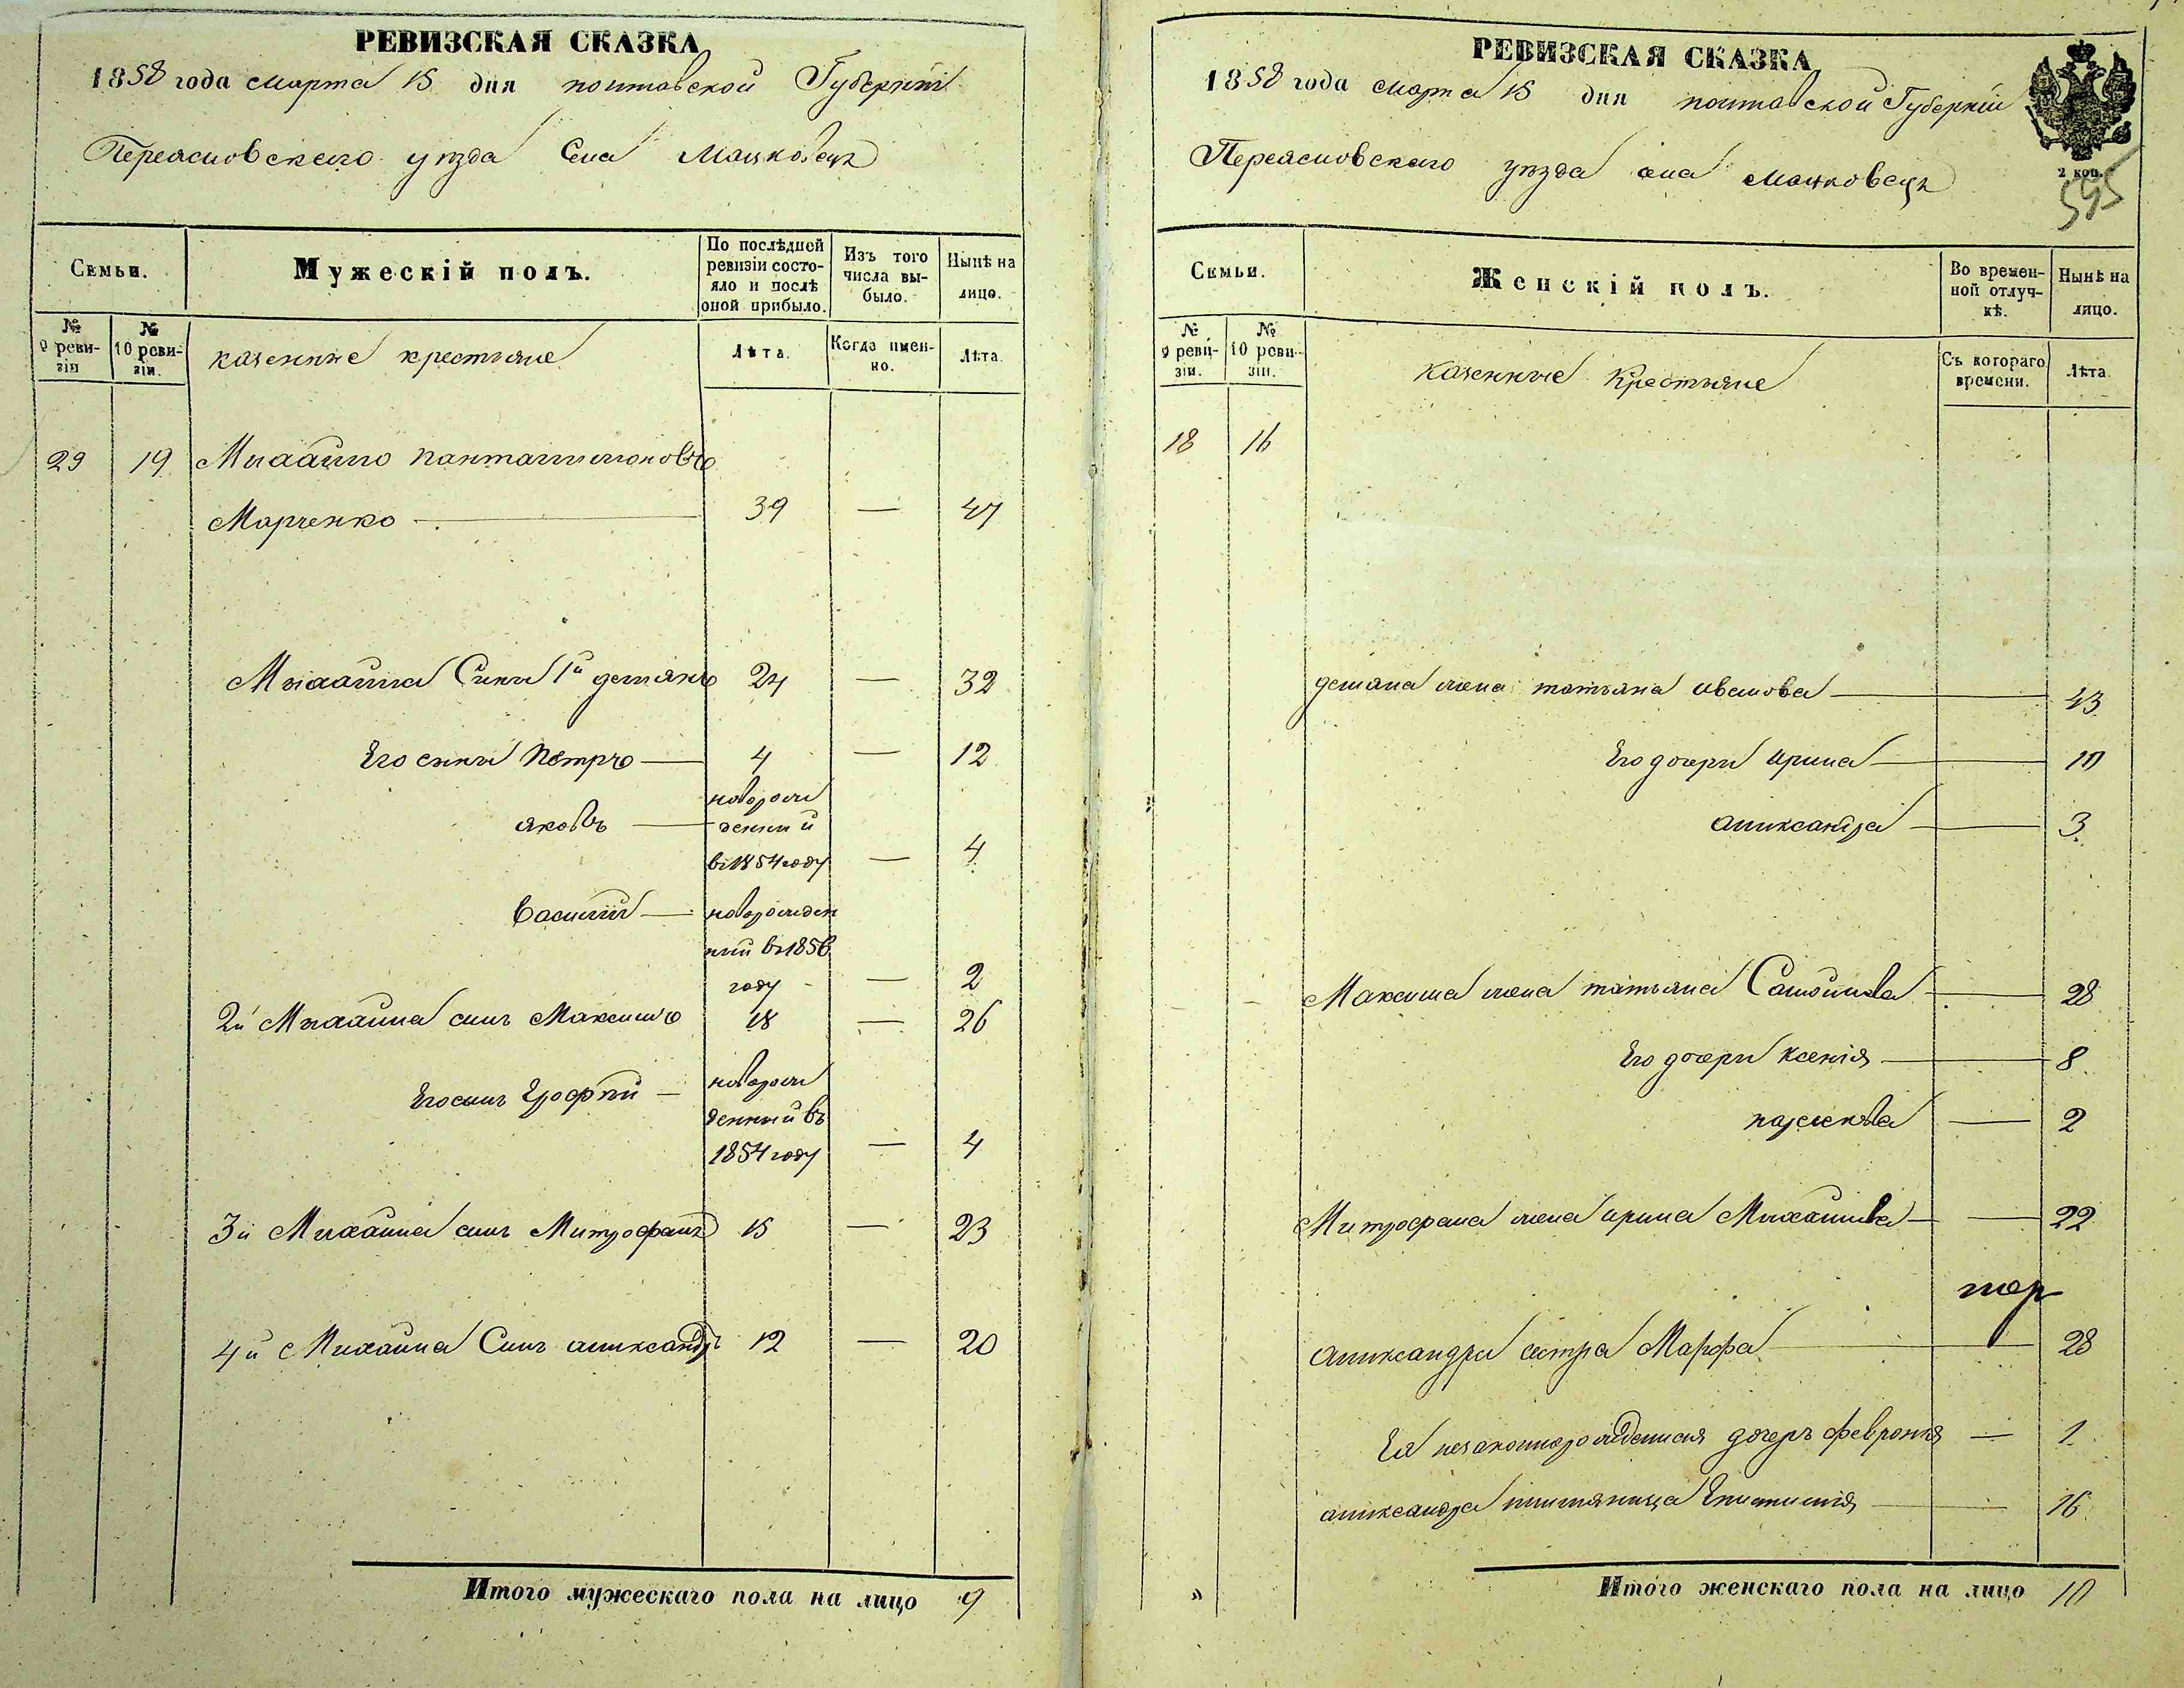 РЕВИЗСКАЯ СКАЗКА
1858 года марта 15 дня полтавской Губернiи
Переясловского уѣзда Села Мацковецъ
Семьи.
Мужескiй полъ.
По послѣдней ревизiи состояло и послѣ оной прибыло.
Изъ того числа выбыло.
Нынѣ на лицо.
№ 9 ревизiи
№ 10 ревизiи.
казенные крестьяне
Лѣта.
Когда именно.
Лѣта.
29 19 Михайло Панталимоновъ
Марченко — 39 — 47
Михайла Сыны 1й демянъ 24 — 32
Его сыны Петръ — 4 — 12
яковъ — новорожденный в 1854 году — 4
Василiй — новорожденный в 1856 году — 2
2й Михайла сынъ Максимъ 18 — 26
Его сынъ Ерофѣй — новорожденный въ 1854 году — 4
3й Михайла сынъ Митрофанъ 15 — 23
4й Михайла Сынъ александръ 12 — 20
Итого мужескаго пола на лицо 9
РЕВИЗСКАЯ СКАЗКА
1858 года марта 15 дня полтавской Губернiи
2 коп.
595
Переясловского уѣзда села мацковецъ
Семьи.
Женскiй полъ.
Во временной отлучкѣ.
Нынѣ на лицо.
№ 9 ревизiи.
№ 10 ревизiи.
казенные Крестьяне
Съ котораго времени.
Лѣта.
18 16
демяна жена татьяна иванова — 43
Его дочери ирина — 10
александра — 3
Максима жена татьяна Самойлова — 28
Его дочери ксенiя — 8
парасковiя — 2
Митрофана жена ирина Михайлова — 22
александра сестра Марфа — 28
Ея незаконнорожденная дочеръ феврония — 1
александра племяница Епистимiя — 16
Итого женскаго пола на лицо 10